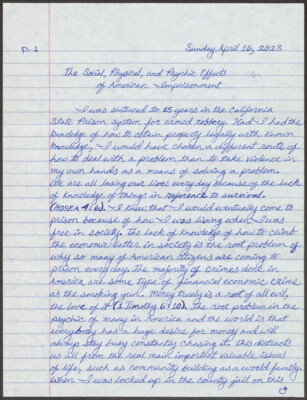 p. 1
Sunday, April 16, 2023
The Social, Physical, and Psychic Effects
of American Imprisonment
I was sentenced to 15 years in the California
State Prison system for armed robbery. Had I had the
knowledge of how to obtain property legally with known
knowledge, I would have chosen a different route of
how to deal with a problem than to take violence in
my own hands as a means of solving a problem.
We are all losing our lives everyday because of the lack
of knowledge of things in reference to survival.
(Hosea 4:6). I knew that I would eventually come to
prison because of how I was living when I was
free in society. The lack of knowledge of how to climb
the economic latter in society is the root problem of
why so many of American citizens are coming to
prison everyday. The majority of crimes done in
America are some type of financial economic crime
as the smoking gun. Money truely is a root of all evil,
the love of it (1 Timothy 6:10). The root problem in the
psychic of many in America and the world is that
everybody has a huge desire for money and will
always stay busy constantly chasing it. This distracts
us all from the real main important valuable issues
of life, such as community building as a world family.
When I was locked up in the county jail on this